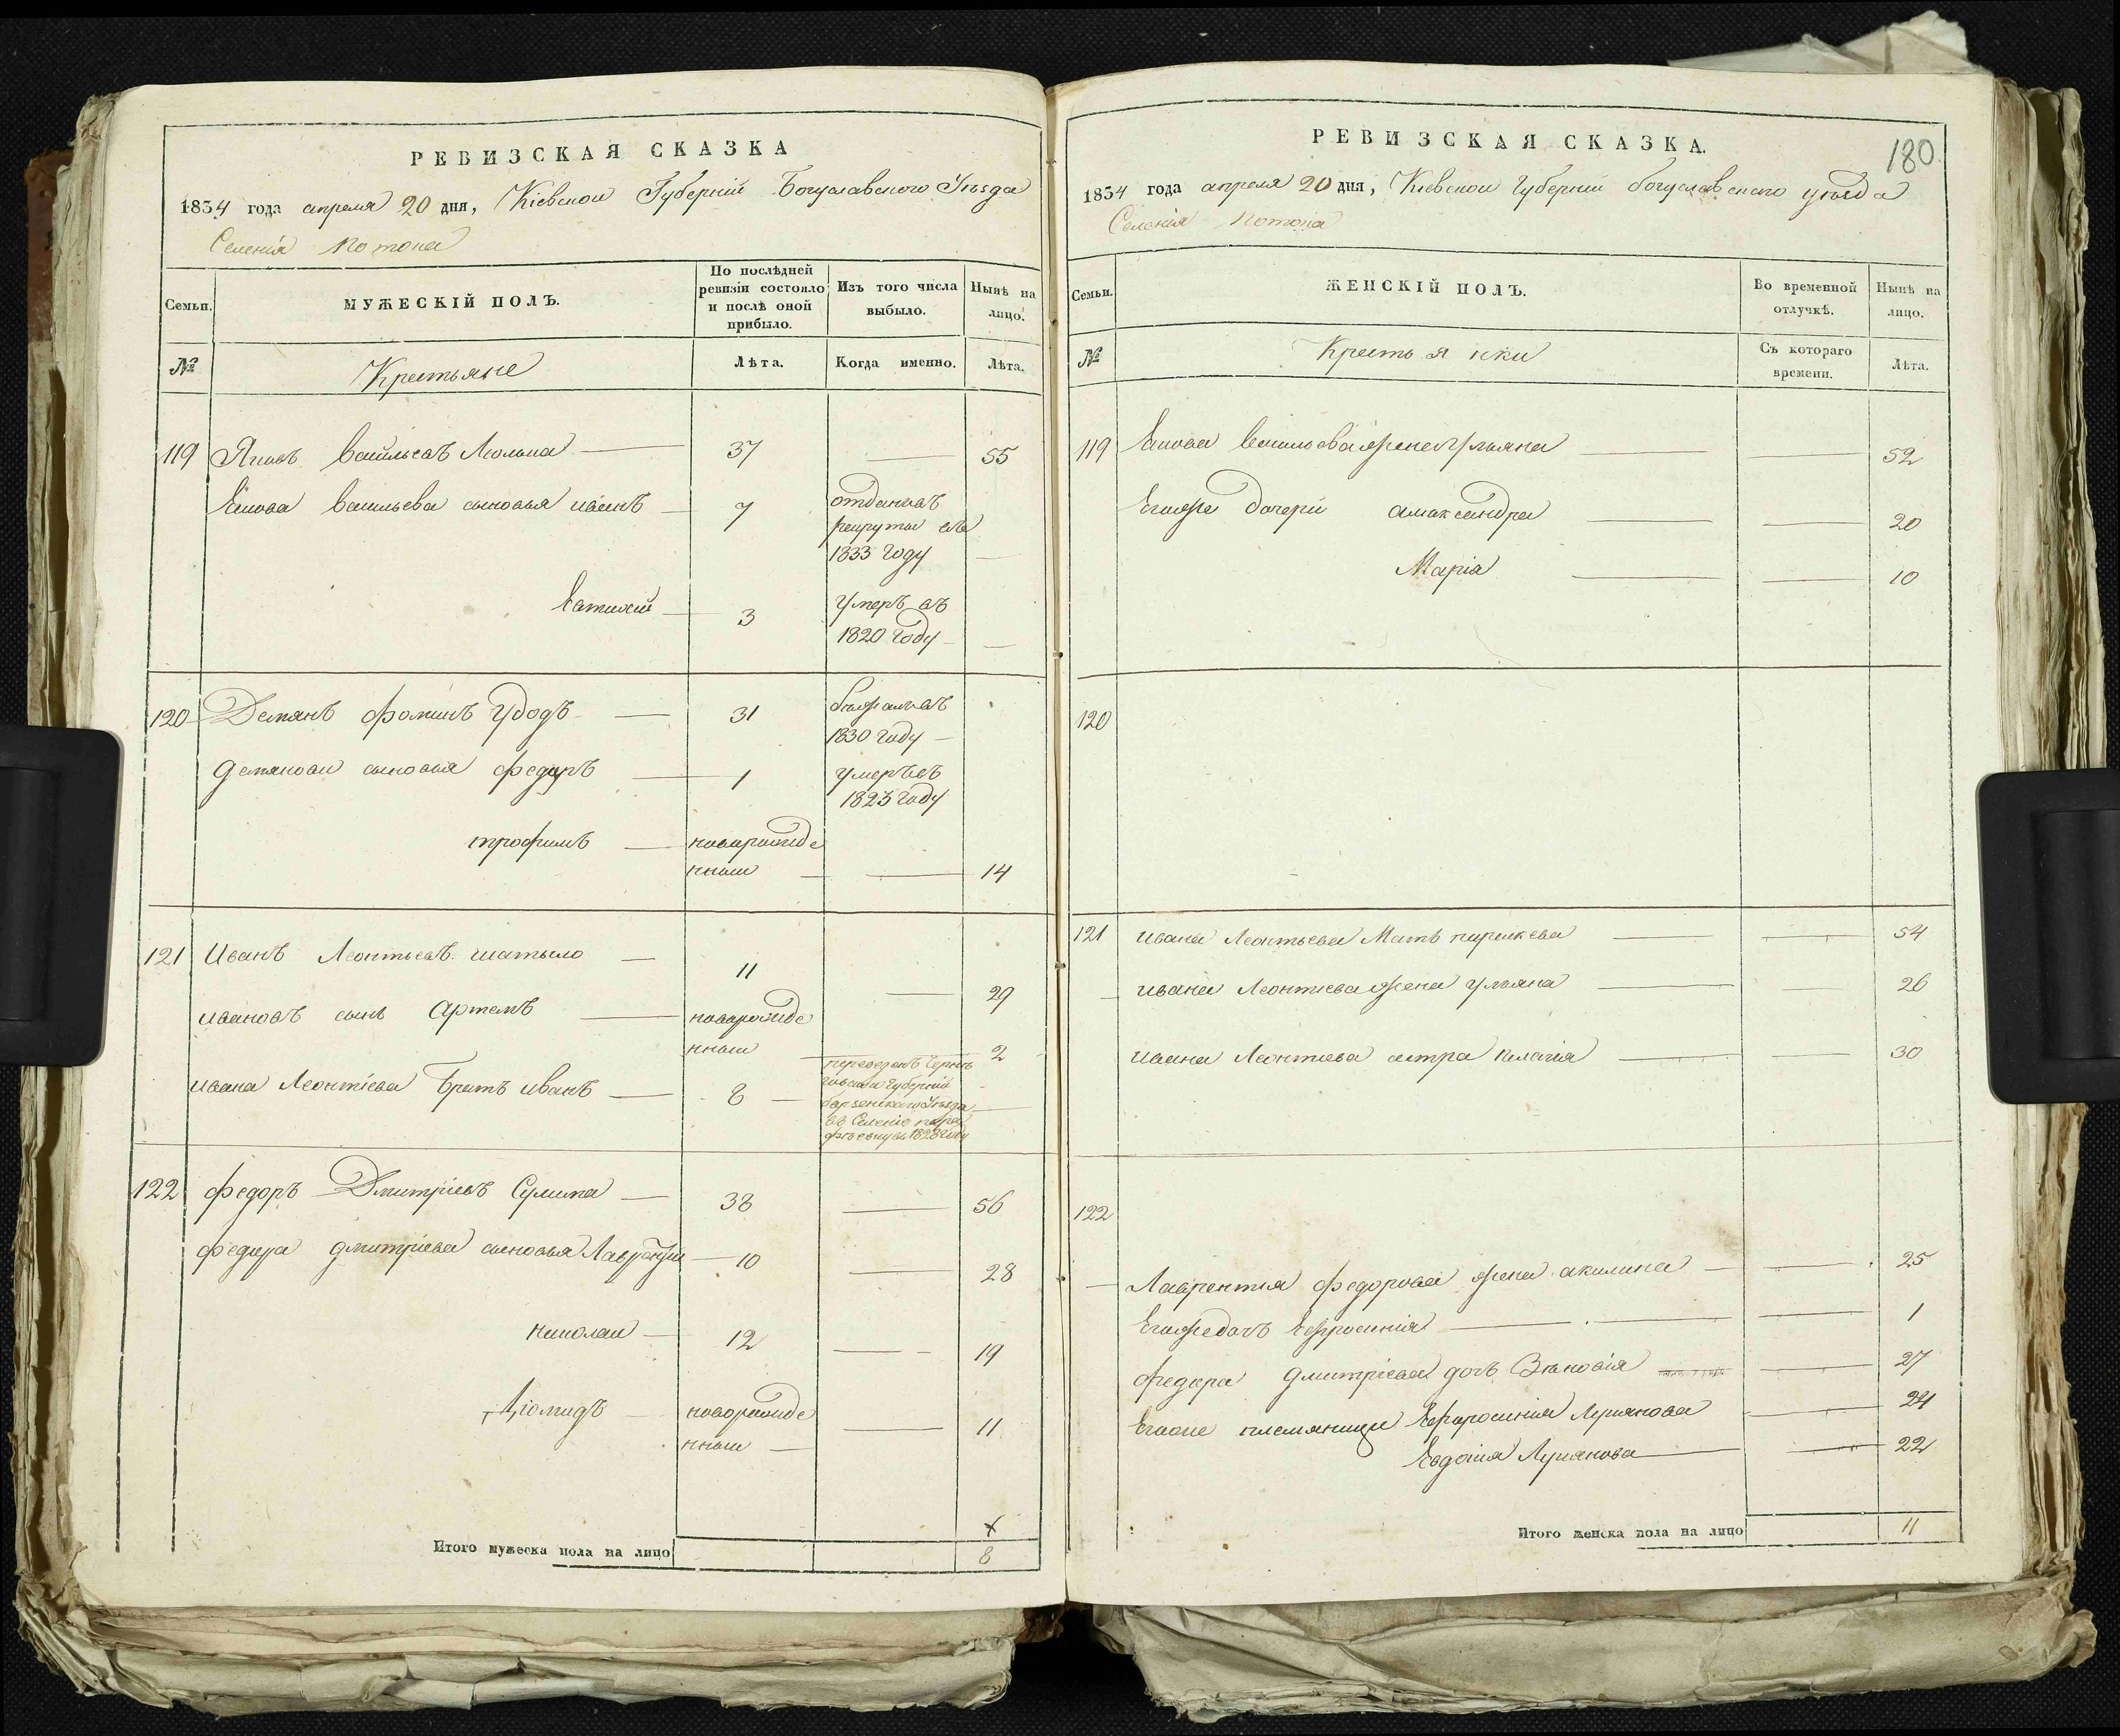 РЕВИЗСКАЯ СКАЗКА
1834 года апреля 20 дня, Кіевской Губерніи Богуславского Уѣзда
Селенія Потока
Семьи.
МУЖЕСКІЙ ПОЛЪ.
По послѣдней ревизіи состояло и послѣ оной прибыло.
Изъ того числа выбыло.
Нынѣ на лицо.
№
Крестьяне
Лѣта.
Когда именно.
Лѣта.
119 Яковъ Васильевъ 37 — 55
Якова Васильева сыновья иванъ 7
отданъ въ
рекруты въ
1833 году
3
умеръ въ
1820 году
120 Демянъ фоминъ Удодъ 31
бежалъ въ
1830 году
демянови сыновья федоръ 1
умеръ въ
1823 году
трофимъ новорожде
нный — 14
121 Иванъ Леонтьевъ шатыло 11 — 29
ивановъ сынъ Артемъ новорожде
нный — 2
ивана Леонтіева Братъ иванъ 8
переведенъ Черни
говской губерніи
борзенского Уезда
въ Селеніе
1828 году
122 федоръ Дмитріевъ Сулима 38 — 56
федора дмитріева сыновья Лаврентій 10 — 28
николай 12 — 19
Діомидъ новорожде
нный — 11
Итого мужеска пола на лицо 8
РЕВИЗСКАЯ СКАЗКА.
180
1834 года апреля 20 дня, Кіевской Губерніи богуславского уезда
Селенія Потока
Семьи.
ЖЕНСКІЙ ПОЛЪ.
Во временной отлучкѣ.
Нынѣ на лицо.
№
Крестьянки
Съ котораго времени.
Лѣта.
119 Якова Васильева жена Ульяна — 52
Егоже дочери александра — 20
Марія — 10
120
121 ивана Леонтьева Мать — 54
ивана Леонтиева жена ульяна — 26
ивана Леонтиева сестра пелагія — 30
122
Лаврентия федорова жена акилина — 25
Егоже дочь Ефросинія — 1
федора дмитріева дочь Зѣновія — 27
Егоже племяницы Ефросинія Лукянова — 24
Евдокия Лукянова — 22
Итого женска пола на лицо 11